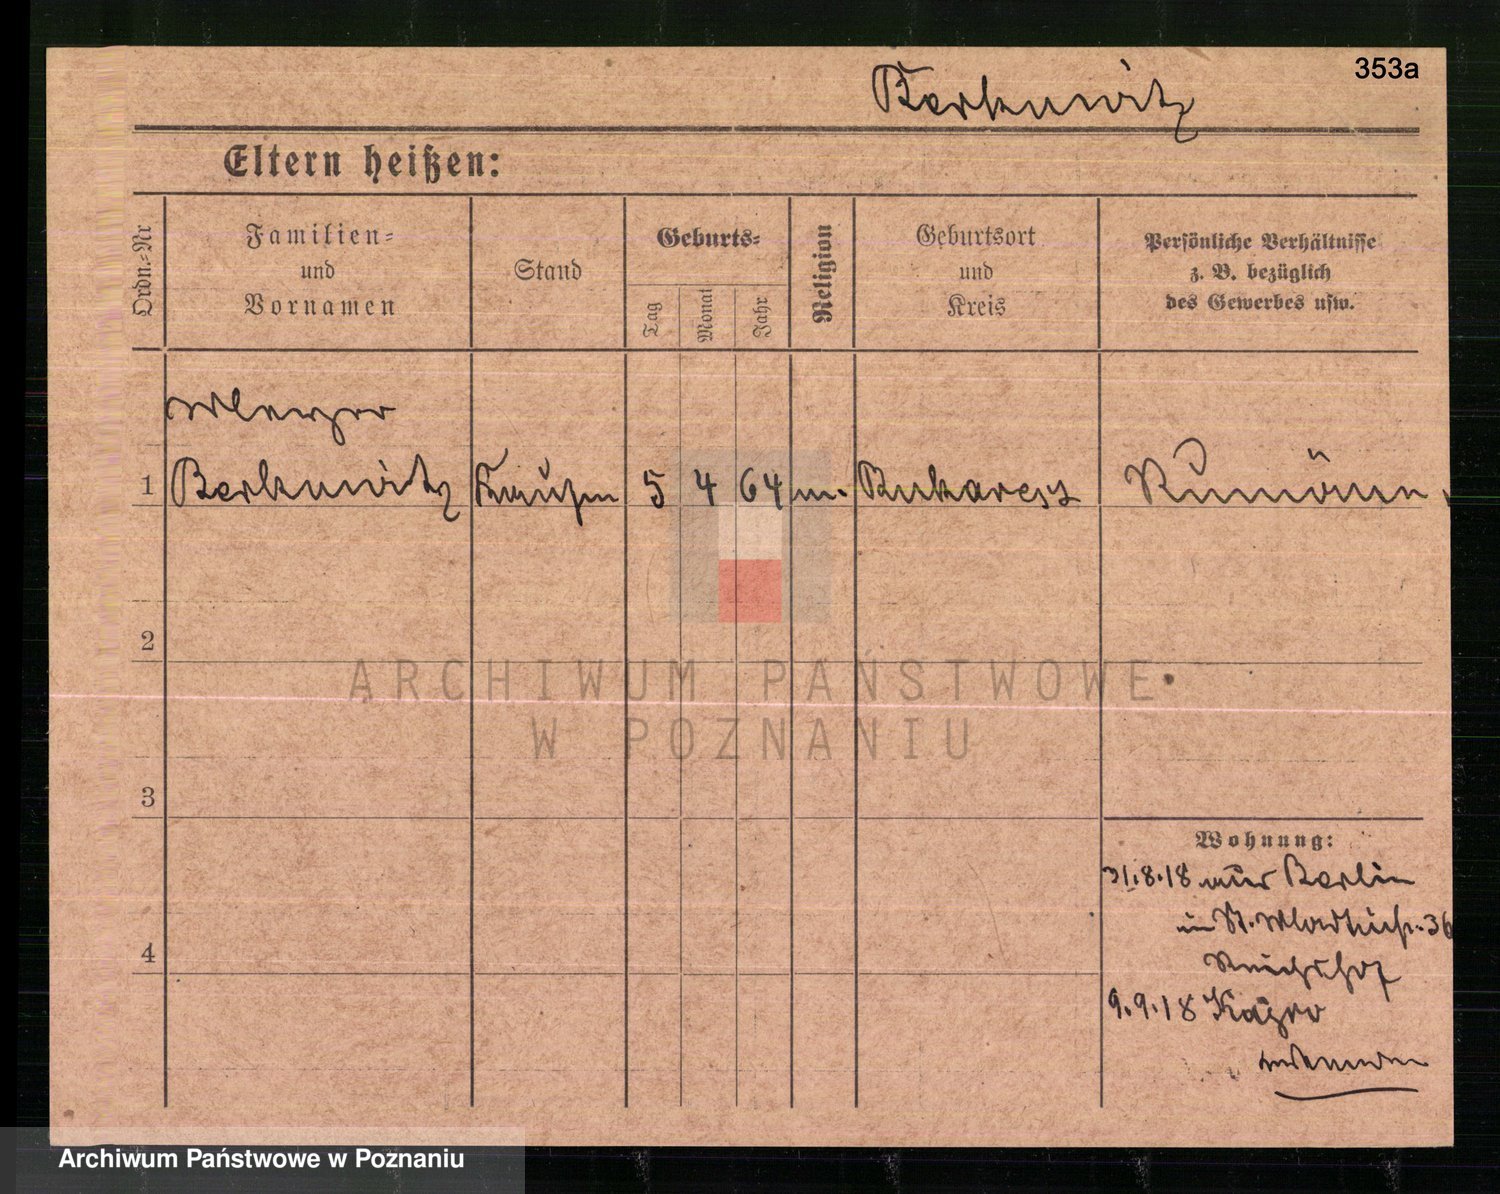 353a
Berkowitz
Eltern heißen:
Ordn.=Nr
Familien=
und
Vornamen
Stand
Geburts=
Tag
Monat
Jahr
Religion
Geburtsort
und
Kreis
Persönliche Verhältnisse
z. B. bezüglich
des Gewerbes usw.
1
Berkowitz
5
4
64
m.
Bukarest
2
ARCHIWUM PAŃSTWOWE
W POZNANIU
3
Wohnung:
31.8.18 aus Berlin
in St. 36
Reichshof
4
9.9.18
Archiwum Państwowe w Poznaniu